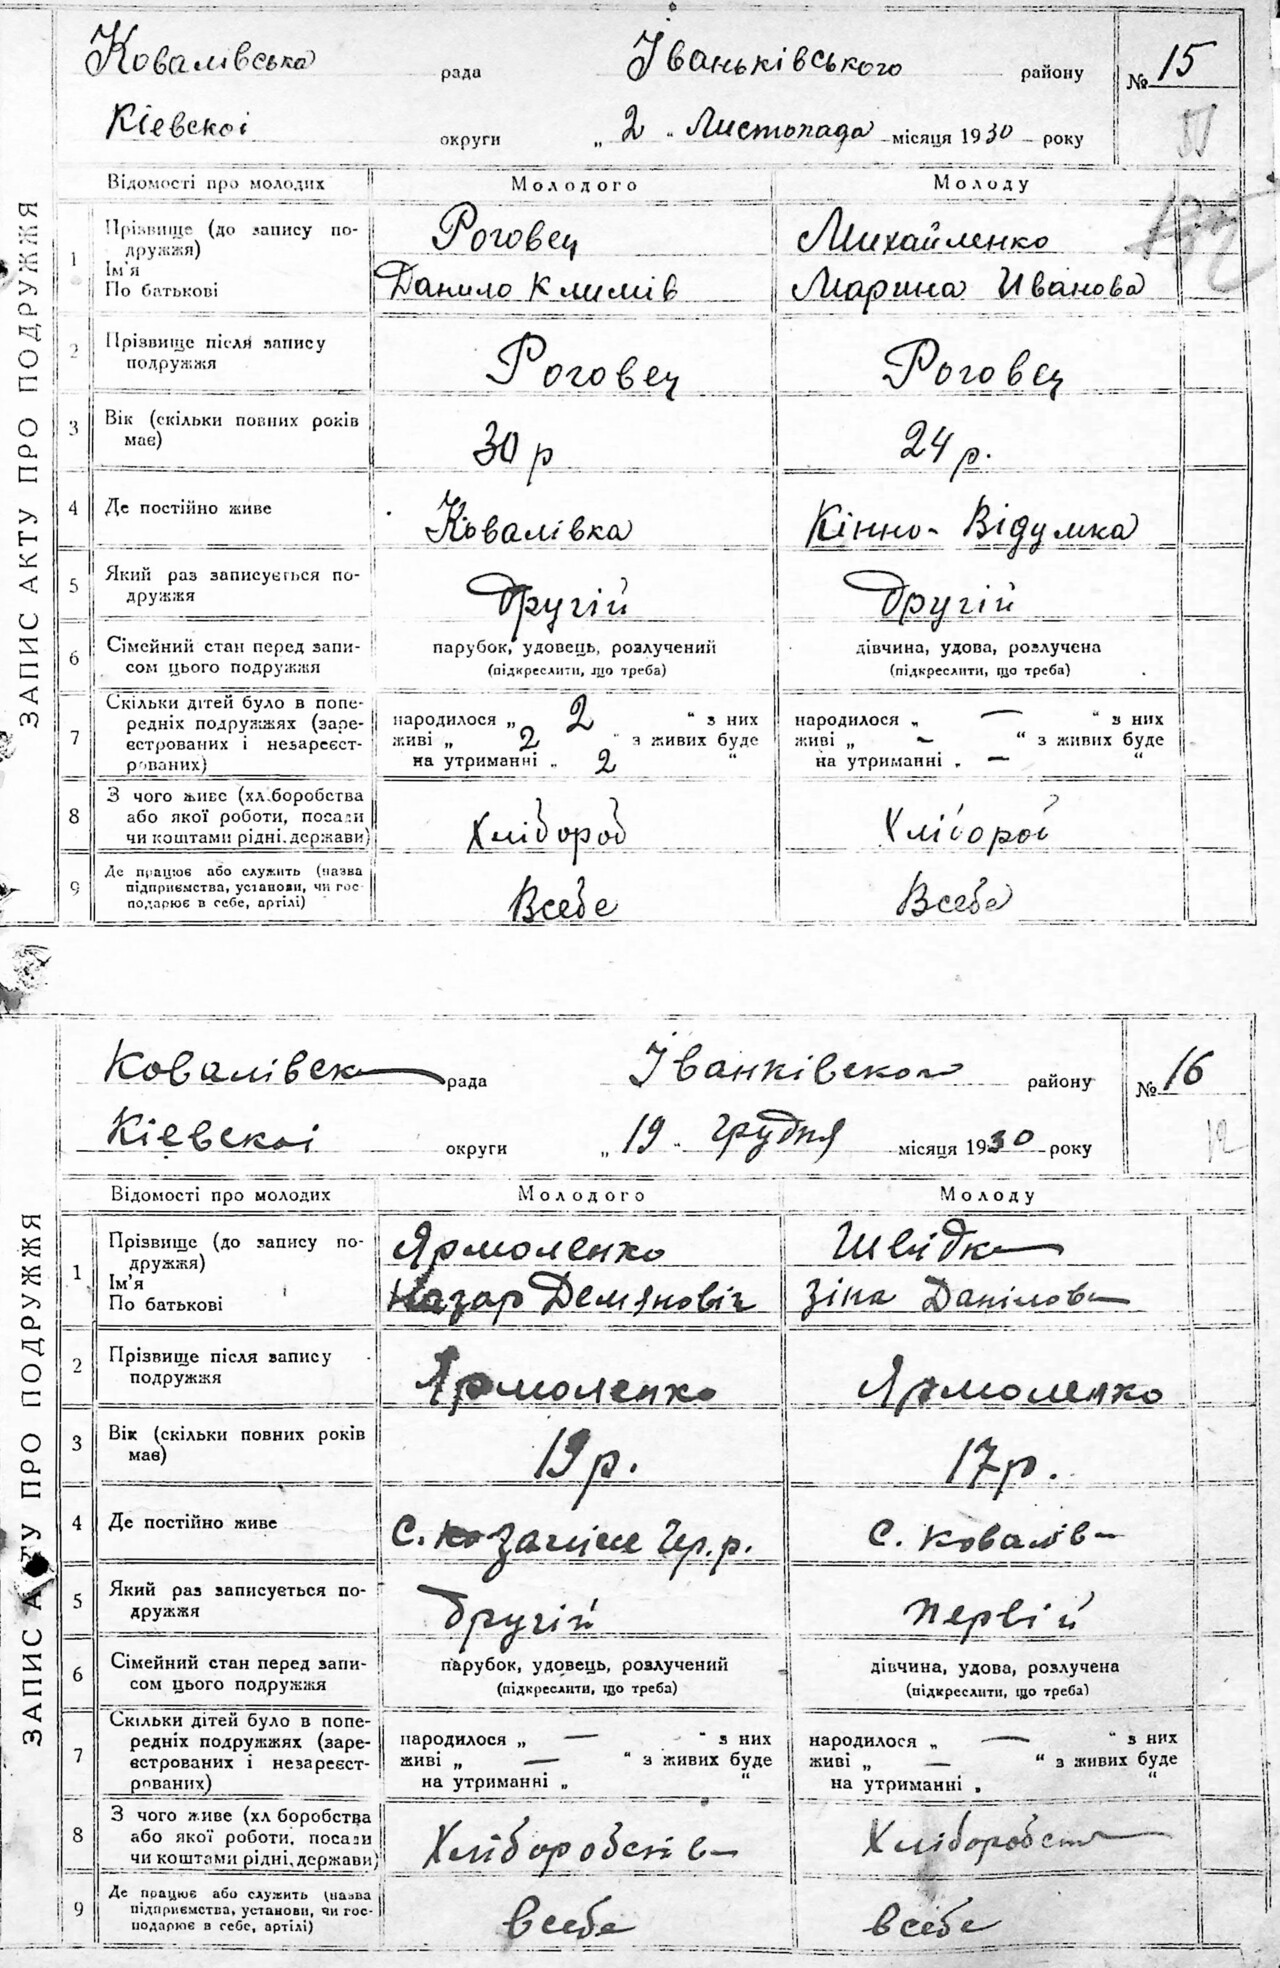 Ковалівська рада Іваньківського району № 15
Кіевскоі округи „ 2 " Листопада місяця 1930 року
ЗАПИС АКТУ ПРО ПОДРУЖЖЯ
Відомості про молодих Молодого Молоду
1 Прізвище (до запису по- Роговец Михайленко
дружжя)
Ім'я Данило Климів Марина Иванова
По батькові
2 Прізвище після запису Роговец Роговец
подружжя
3 Вік (скільки повних років 30 р 24 р.
має)
4 Де постійно живе Ковалівка Кінно-Відумка
5 Який раз записується по- другій другій
дружжя
6 Сімейний стан перед запи- парубок, удовець, розлучений дівчина, удова, розлучена
сом цього подружжя (підкреслити, що треба) (підкреслити, що треба)
7 Скільки дітей було в попе- народилося „ 2 " з них народилося „ — " з них
редніх подружжях (заре- живі „ 2 " з живих буде живі „ — " з живих буде
єстрованих і незареєст- на утриманні „ 2 " на утриманні „ — "
рованих)
8 З чого живе (хліборобства Хлібороб Хлібороб
або якої роботи, посади
чи коштами рідні, держави)
9 Де працює або служить (назва Всебе Всебе
підприємства, установи, чи гос-
подарює в себе, артілі)
Ковалівск рада Іванківского району № 16
Кіевскоі округи „ 19 " грудня місяця 1930 року
12
ЗАПИС АКТУ ПРО ПОДРУЖЖЯ
Відомості про молодих Молодого Молоду
1 Прізвище (до запису по- Ярмоленко Швідка
дружжя)
Ім'я Назар Демяновіч Зіна Данілов
По батькові
2 Прізвище після запису Ярмоленко Ярмоленко
подружжя
3 Вік (скільки повних років 19 р. 17 р.
має)
4 Де постійно живе С. С. Ковалів
5 Який раз записується по- другій первій
дружжя
6 Сімейний стан перед запи- парубок, удовець, розлучений дівчина, удова, розлучена
сом цього подружжя (підкреслити, що треба) (підкреслити, що треба)
7 Скільки дітей було в попе- народилося „ — " з них народилося „ — " з них
редніх подружжях (заре- живі „ — " з живих буде живі „ — " з живих буде
єстрованих і незареєст- на утриманні „ " на утриманні „ "
рованих)
8 З чого живе (хліборобства Хліборобств Хліборобств
або якої роботи, посади
чи коштами рідні, держави)
9 Де працює або служить (назва всебе всебе
підприємства, установи, чи гос-
подарює в себе, артілі)